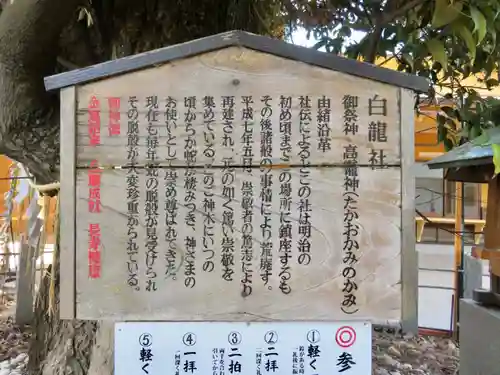 白龍社
御祭神　高龗神(たかおかみのかみ)
由緒沿革
社伝によるとこの社は明治の
初め頃までこの場所に鎮座するも
その後諸般の事権により荒廃す。
平成七年五月、崇敬者の篤志により
再建され、元の如く篤い崇敬を
集めている。このご神木にいつの
頃からか蛇が棲みつき、神さまの
お使いとして崇め尊ばれてきた。
現在も毎年蛇の脱殻が見受けられ
その脱殻が大変珍重がられている。
御神徳
◎
参
①軽く
②二拝
③二拍
④一拝
⑤軽く